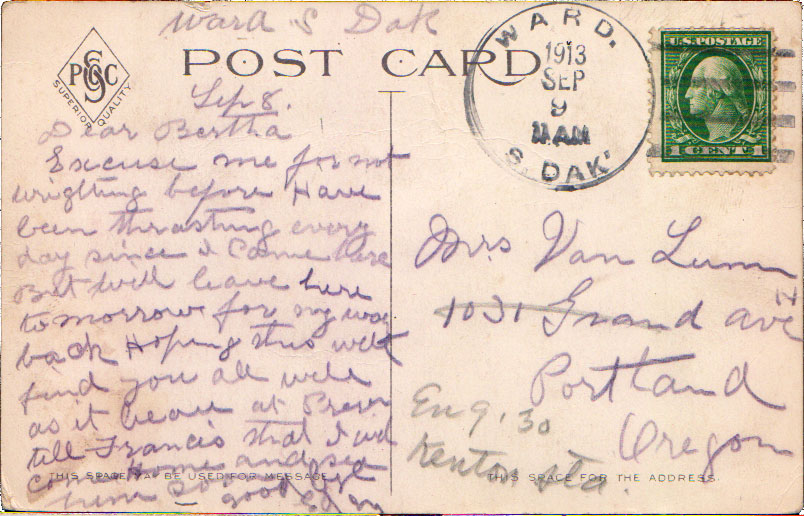 Ward S Dak
POST CARD
PGC
S
SUPERIOR QUALITY
WARD.
1913
SEP
9
S. DAK.
U.S. POSTAGE
1 CENT 1
Sep 8.
Dear Bertha
Excuse me for not
wrigtting before Have
been thrashing every
day since I came here
But will leave here
tomorrow for my way
back Hoping this will
find you all well
as it leave at
till Francis that I will
Home and see
him soon good
Mrs Van Lumm
1031 Grand ave N
Portland
Oregon
Eng. 30
Kenton Sta.
THIS SPACE MAY BE USED FOR MESSAGE
THIS SPACE FOR THE ADDRESS.